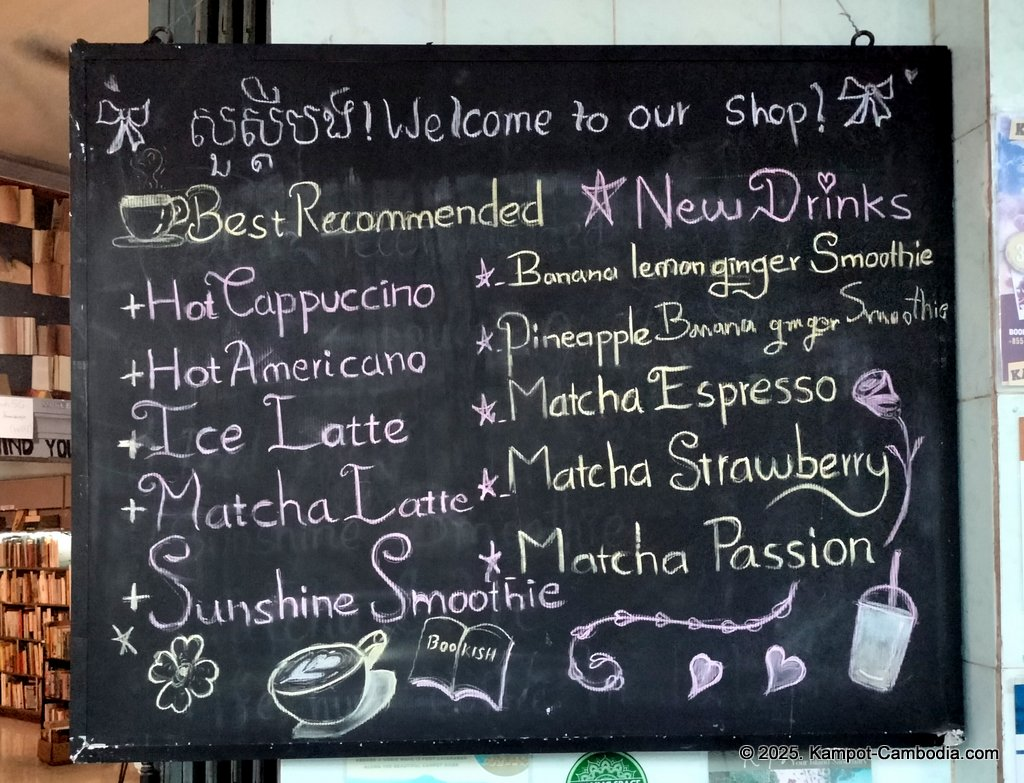 សួស្តីបង! Welcome to our Shop!
Best Recommended
+Hot Cappuccino
+Hot Americano
+Ice Latte
+Matcha Latte
+Sunshine Smoothie
New Drinks
- Banana lemon ginger Smoothie
- Pineapple Banana ginger Smoothie
- Matcha Espresso
- Matcha Strawberry
- Matcha Passion
BOOKISH
© 2025. Kampot-Cambodia.com